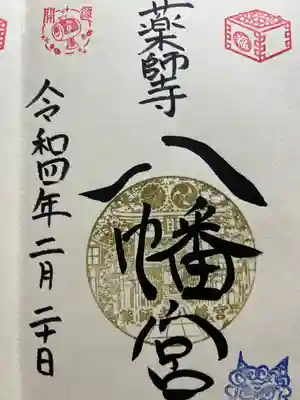 薬師寺
八幡宮
令和四年二月二十日
福